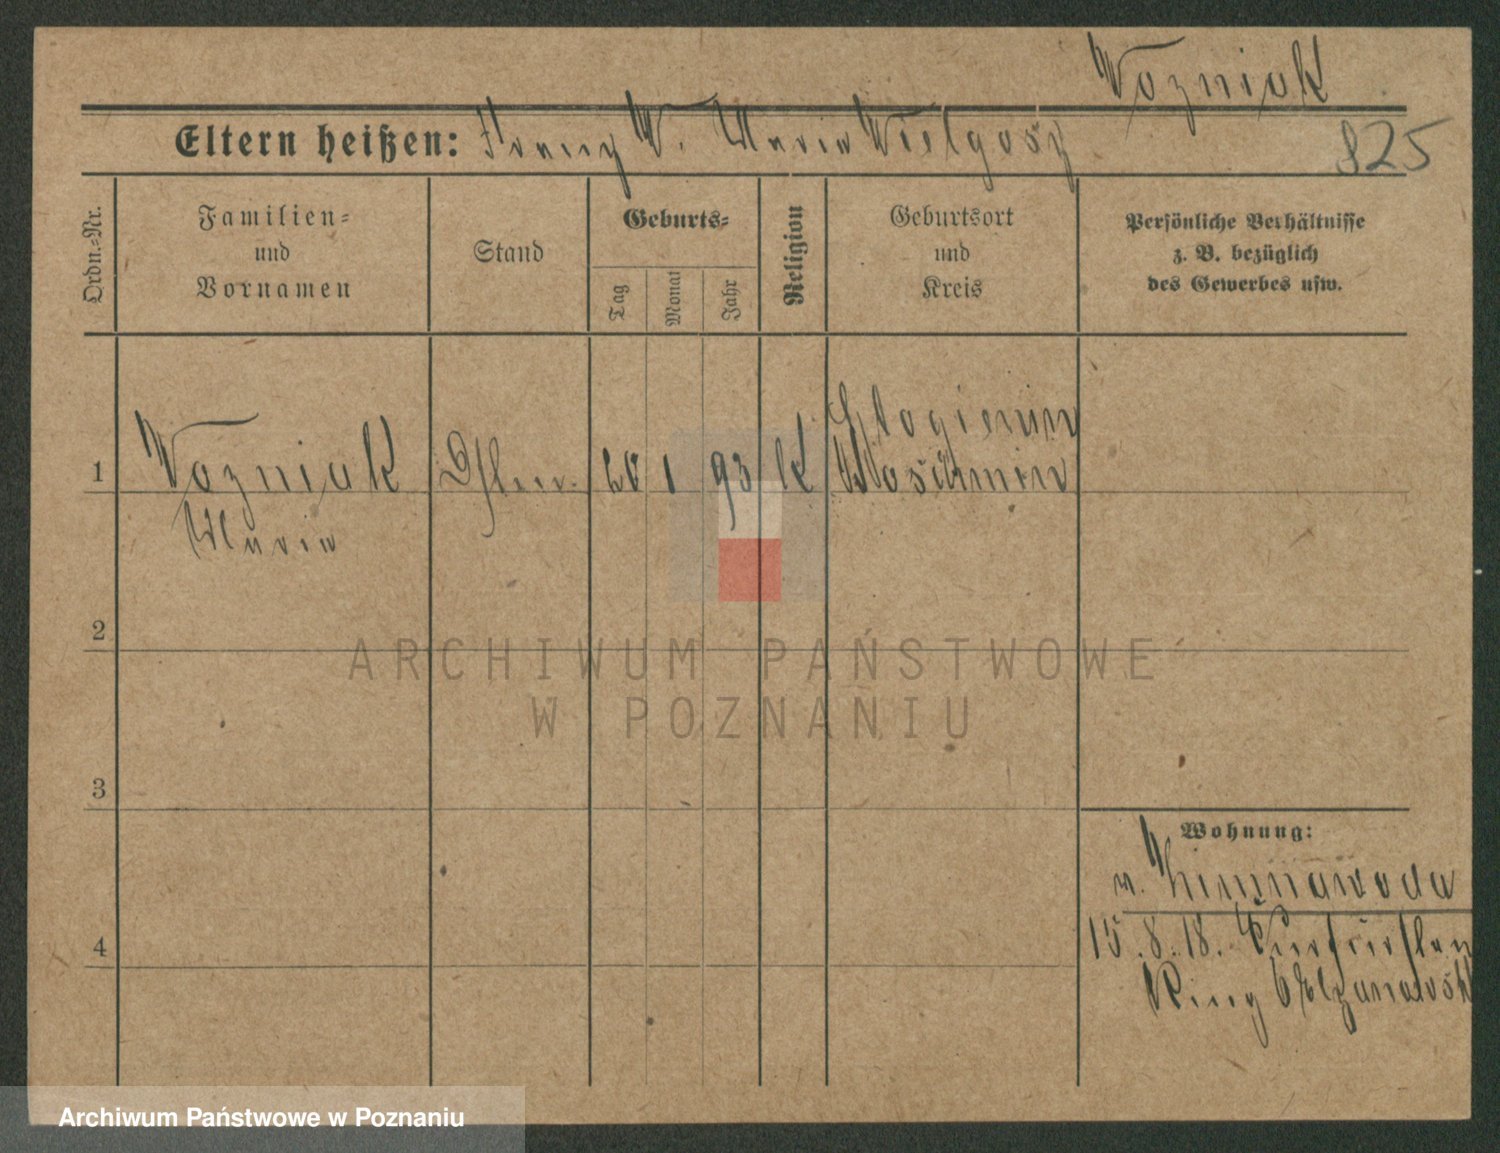 Wozniak
Eltern heißen: Franz W. Maria Wielgosz
825
Ordn.-Nr.
Familien-
und
Vornamen
Stand
Geburts-
Tag
Monat
Jahr
Religion
Geburtsort
und
Kreis
Persönliche Verhältnisse
z. B. bezüglich
des Gewerbes usw.
1
Wozniak
Maria
1 93 K
2
ARCHIWUM PAŃSTWOWE
W POZNANIU
3
Wohnung:
v. Zimnawoda
4
15.8.18. Kurfürsten
Ring 6
Archiwum Państwowe w Poznaniu